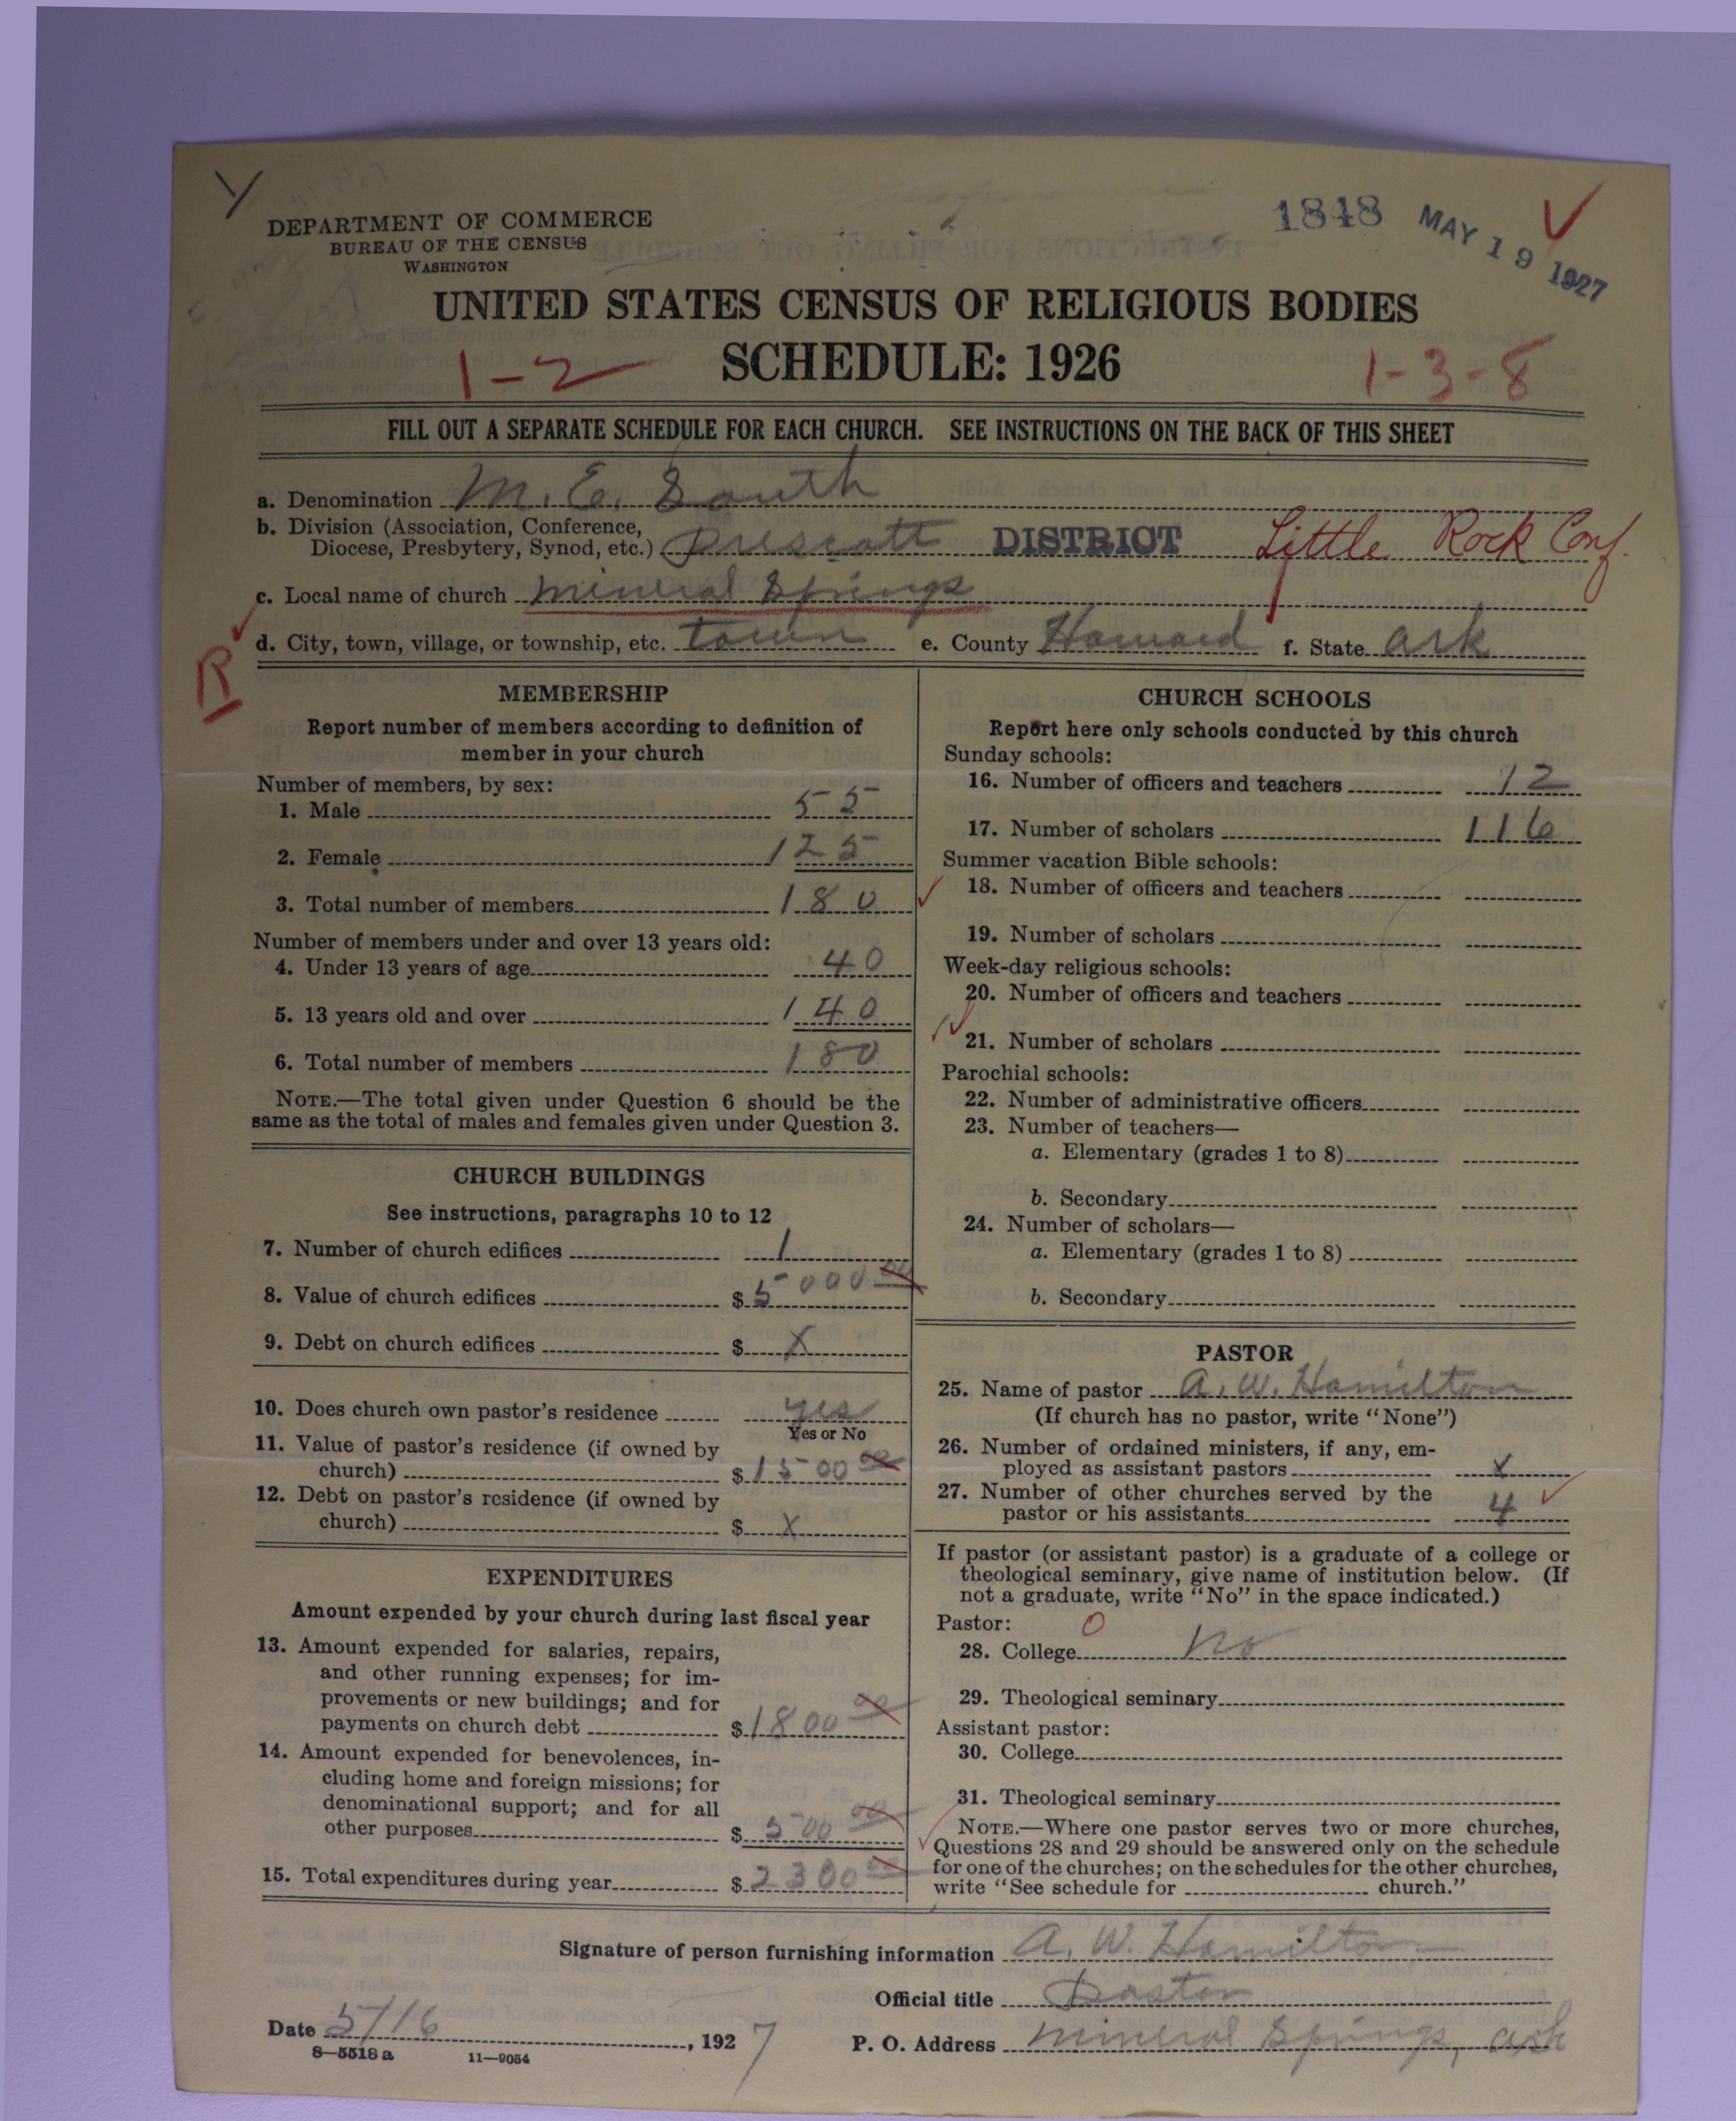 1848 MAY 19 1927
DEPARTMENT OF COMMERCE
BUREAU OF THE CENSUS
WASHINGTON
UNITED STATES CENSUS OF RELIGIOUS BODIES
1-2 SCHEDULE: 1926 1-3-8
FILL OUT A SEPARATE SCHEDULE FOR EACH CHURCH. SEE INSTRUCTIONS ON THE BACK OF THIS SHEET
a. Denomination M. E. South
b. Division (Association, Conference,
Diocese, Presbytery, Synod, etc.) Prescott DISTRICT Little Rock Conf.
c. Local name of church Mineral Springs
d. City, town, village, or township, etc. town e. County Howard f. State Ark
R
MEMBERSHIP
Report number of members according to definition of
member in your church
Number of members, by sex:
1. Male 55
2. Female 125
3. Total number of members 180
Number of members under and over 13 years old:
4. Under 13 years of age 40
5. 13 years old and over 140
6. Total number of members 180
NOTE.—The total given under Question 6 should be the
same as the total of males and females given under Question 3.
CHURCH BUILDINGS
See instructions, paragraphs 10 to 12
7. Number of church edifices 1
8. Value of church edifices $5000 00
9. Debt on church edifices $ X
10. Does church own pastor's residence yes
Yes or No
11. Value of pastor's residence (if owned by
church) $1500 00
12. Debt on pastor's residence (if owned by
church) $ X
EXPENDITURES
Amount expended by your church during last fiscal year
13. Amount expended for salaries, repairs,
and other running expenses; for im-
provements or new buildings; and for
payments on church debt $1800 00
14. Amount expended for benevolences, in-
cluding home and foreign missions; for
denominational support; and for all
other purposes $ 500 00
15. Total expenditures during year $2300 00
CHURCH SCHOOLS
Report here only schools conducted by this church
Sunday schools:
16. Number of officers and teachers 12
17. Number of scholars 116
Summer vacation Bible schools:
18. Number of officers and teachers
19. Number of scholars
Week-day religious schools:
20. Number of officers and teachers
21. Number of scholars
Parochial schools:
22. Number of administrative officers
23. Number of teachers—
a. Elementary (grades 1 to 8)
b. Secondary
24. Number of scholars—
a. Elementary (grades 1 to 8)
b. Secondary
PASTOR
25. Name of pastor A. W. Hamilton
(If church has no pastor, write "None")
26. Number of ordained ministers, if any, em-
ployed as assistant pastors X
27. Number of other churches served by the
pastor or his assistants 4
If pastor (or assistant pastor) is a graduate of a college or
theological seminary, give name of institution below. (If
not a graduate, write "No" in the space indicated.)
Pastor: 0
28. College No
29. Theological seminary
Assistant pastor:
30. College
31. Theological seminary
NOTE.—Where one pastor serves two or more churches,
Questions 28 and 29 should be answered only on the schedule
for one of the churches; on the schedules for the other churches,
write "See schedule for church."
Signature of person furnishing information A. W. Hamilton
Official title Pastor
Date 5/16, 1927 P. O. Address Mineral Springs, Ark
8—5518 a 11—9054